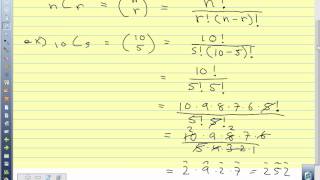 nCr = (n r) = n! / r!(n-r)!
ex) 10C5 = (10 5) = 10! / 5!(10-5)!
= 10! / 5! 5!
= 10·9·8·7·6·5! / 5! 5!
= 10·9·8·7·6 / 5·4·3·2·1
= 2·9·2·7 = 252